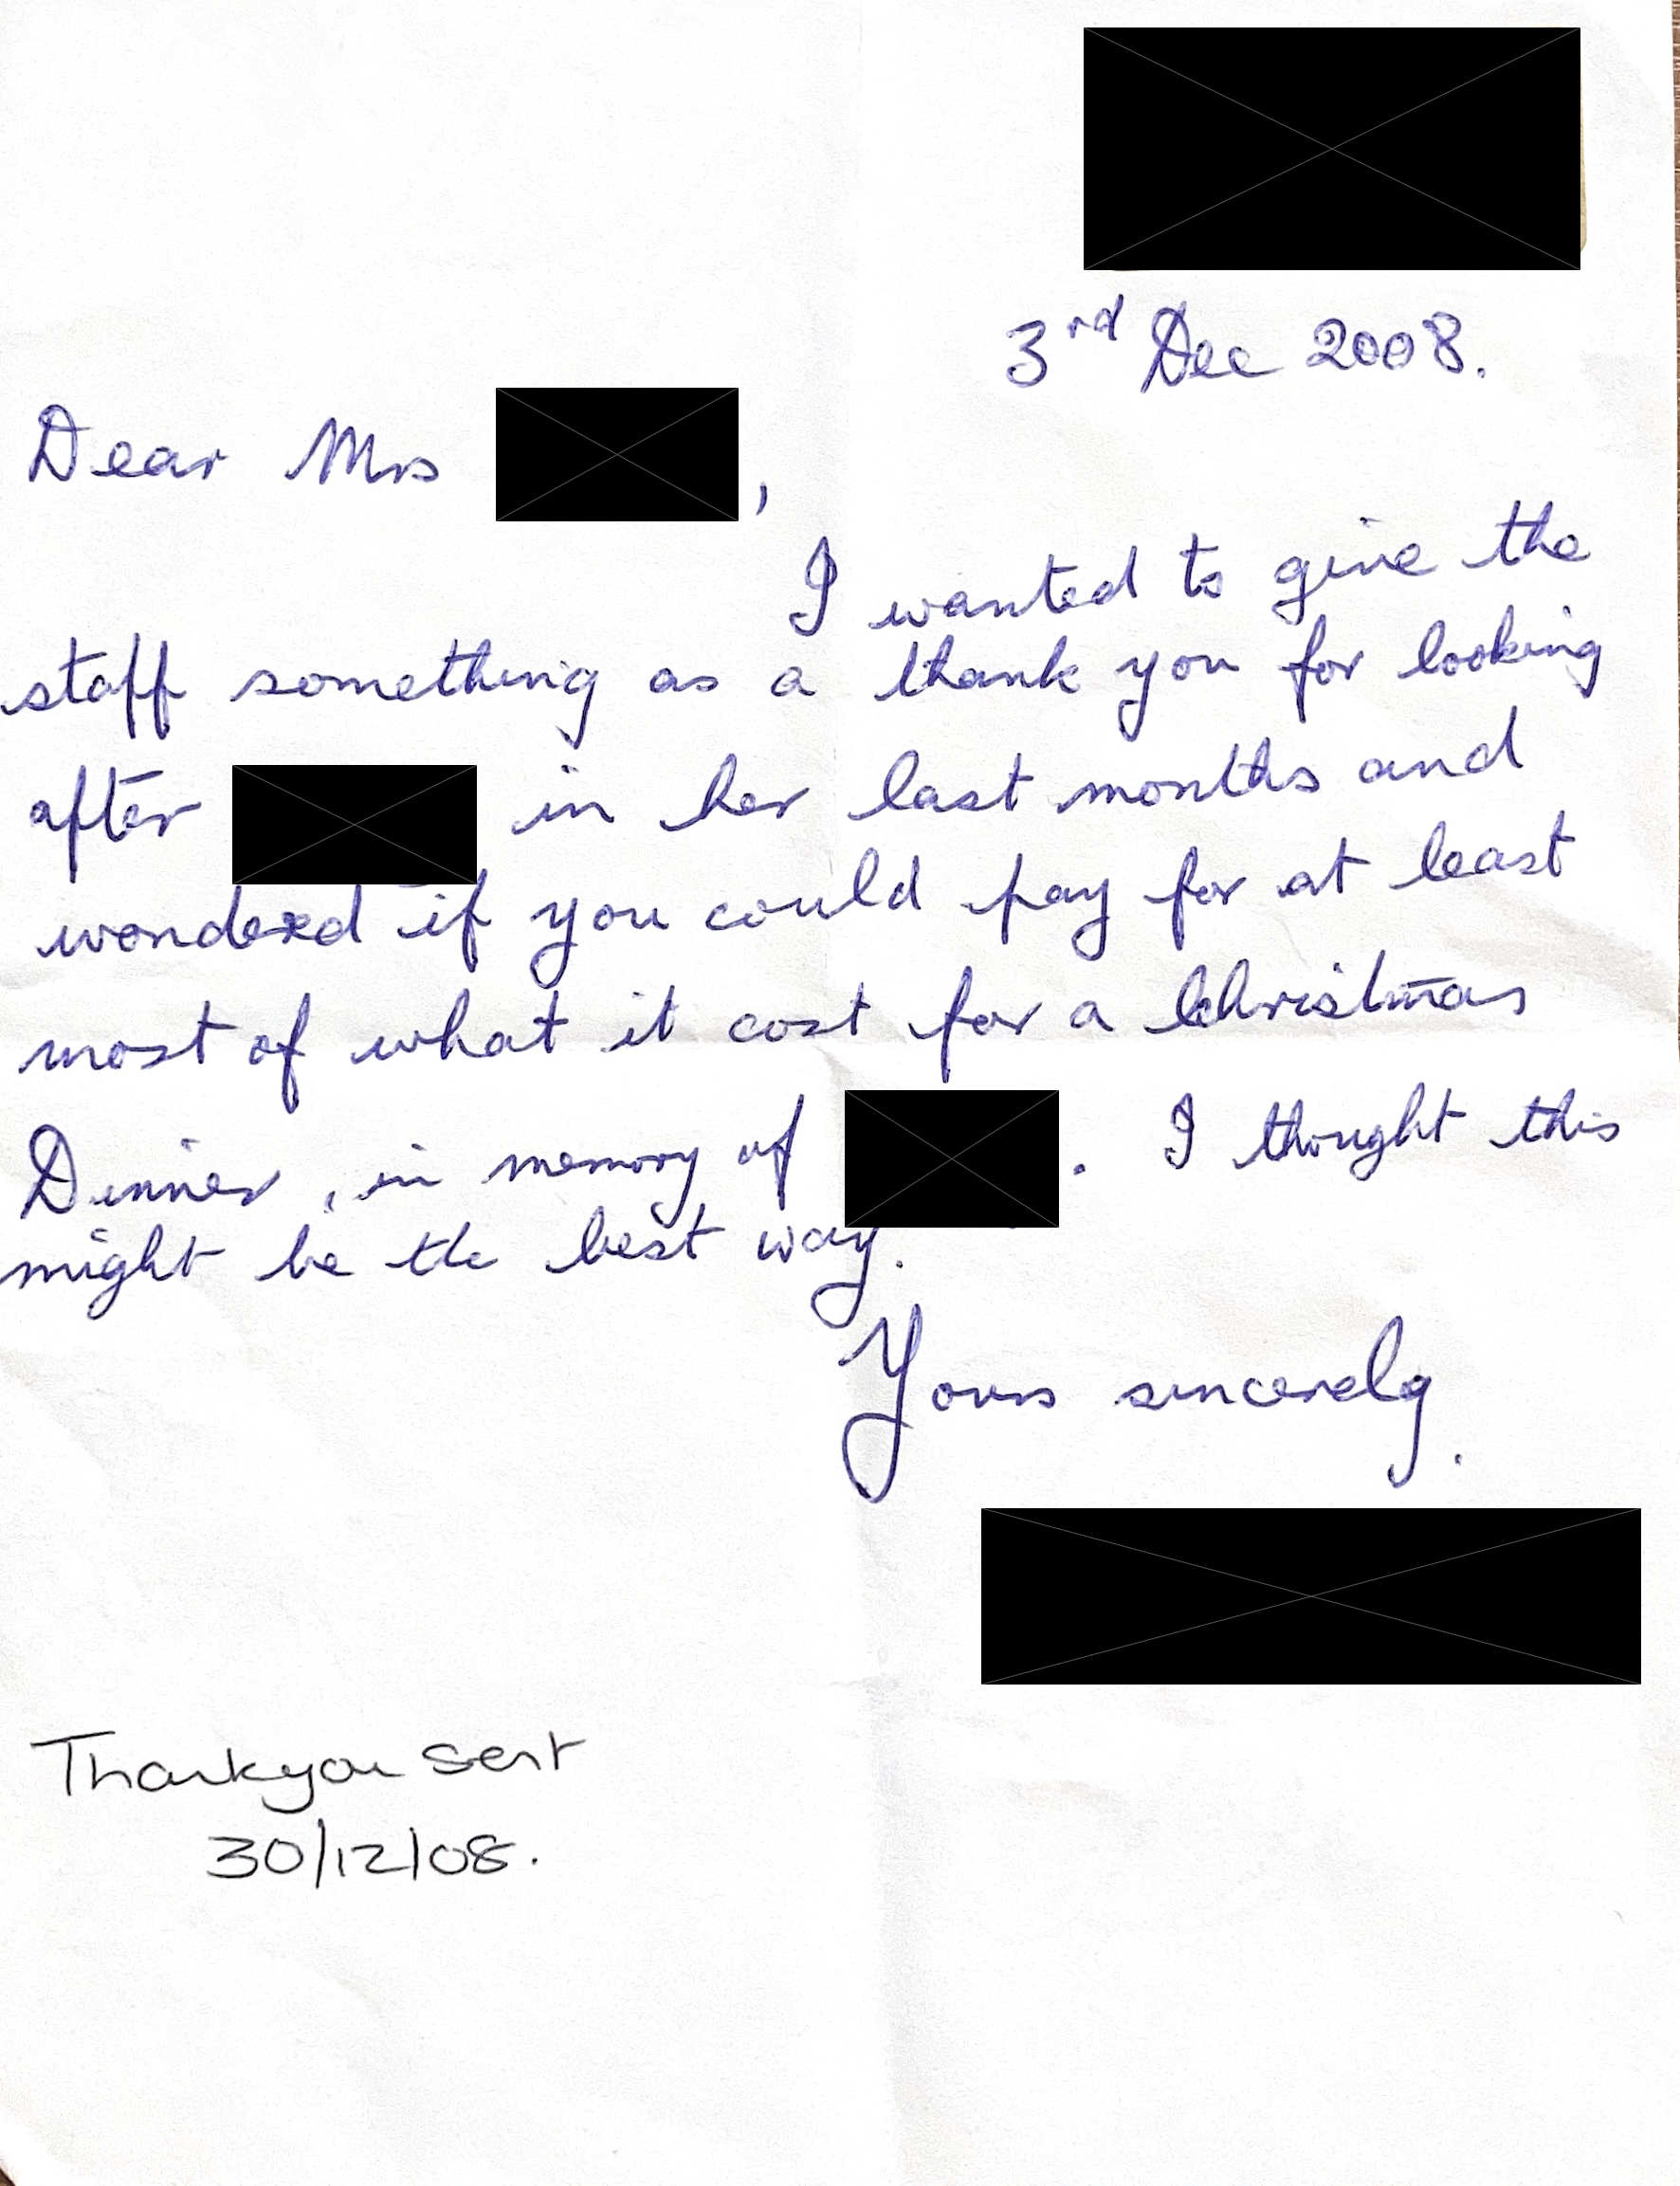 3rd Dec 2008.
Dear Mrs ,
I wanted to give the
staff something as a thank you for looking
after in her last months and
wondered if you could pay for at least
most of what it cost for a Christmas
Dinner, in memory of . I thought this
might be the best way.
Yours sincerely.
Thankyou sent
30/12/08.